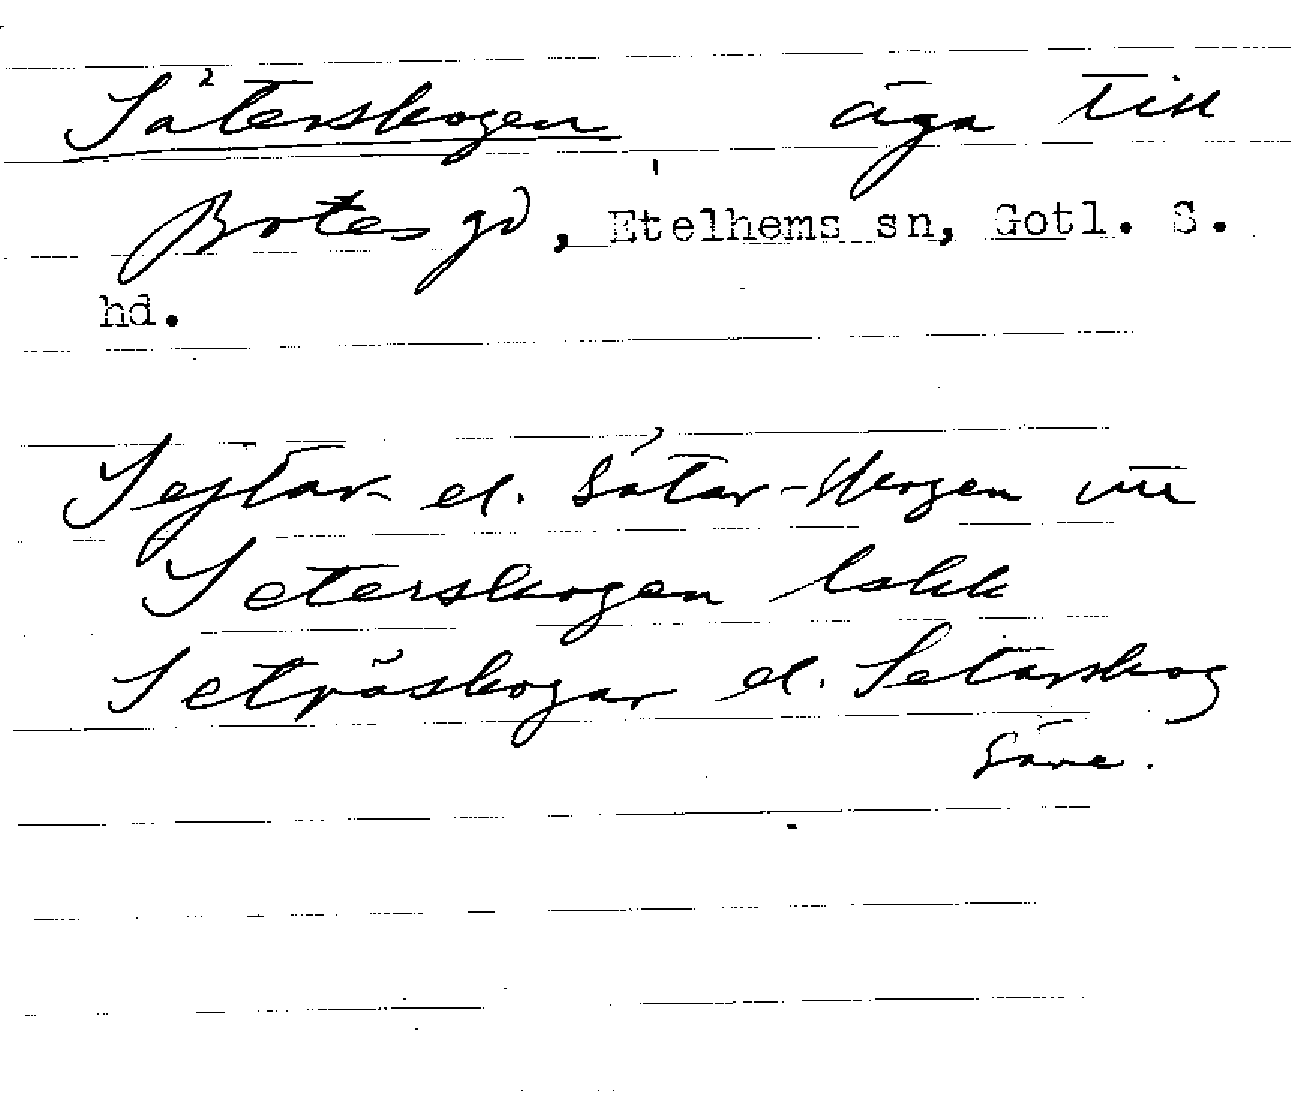 Såterskogen äga till
Botes gd, Etelhems sn, Gotl. S.
hd.
Sejtar- el. Såtar-skogen
Seterskogen
Seträskogar el. Setarskog
Säve.